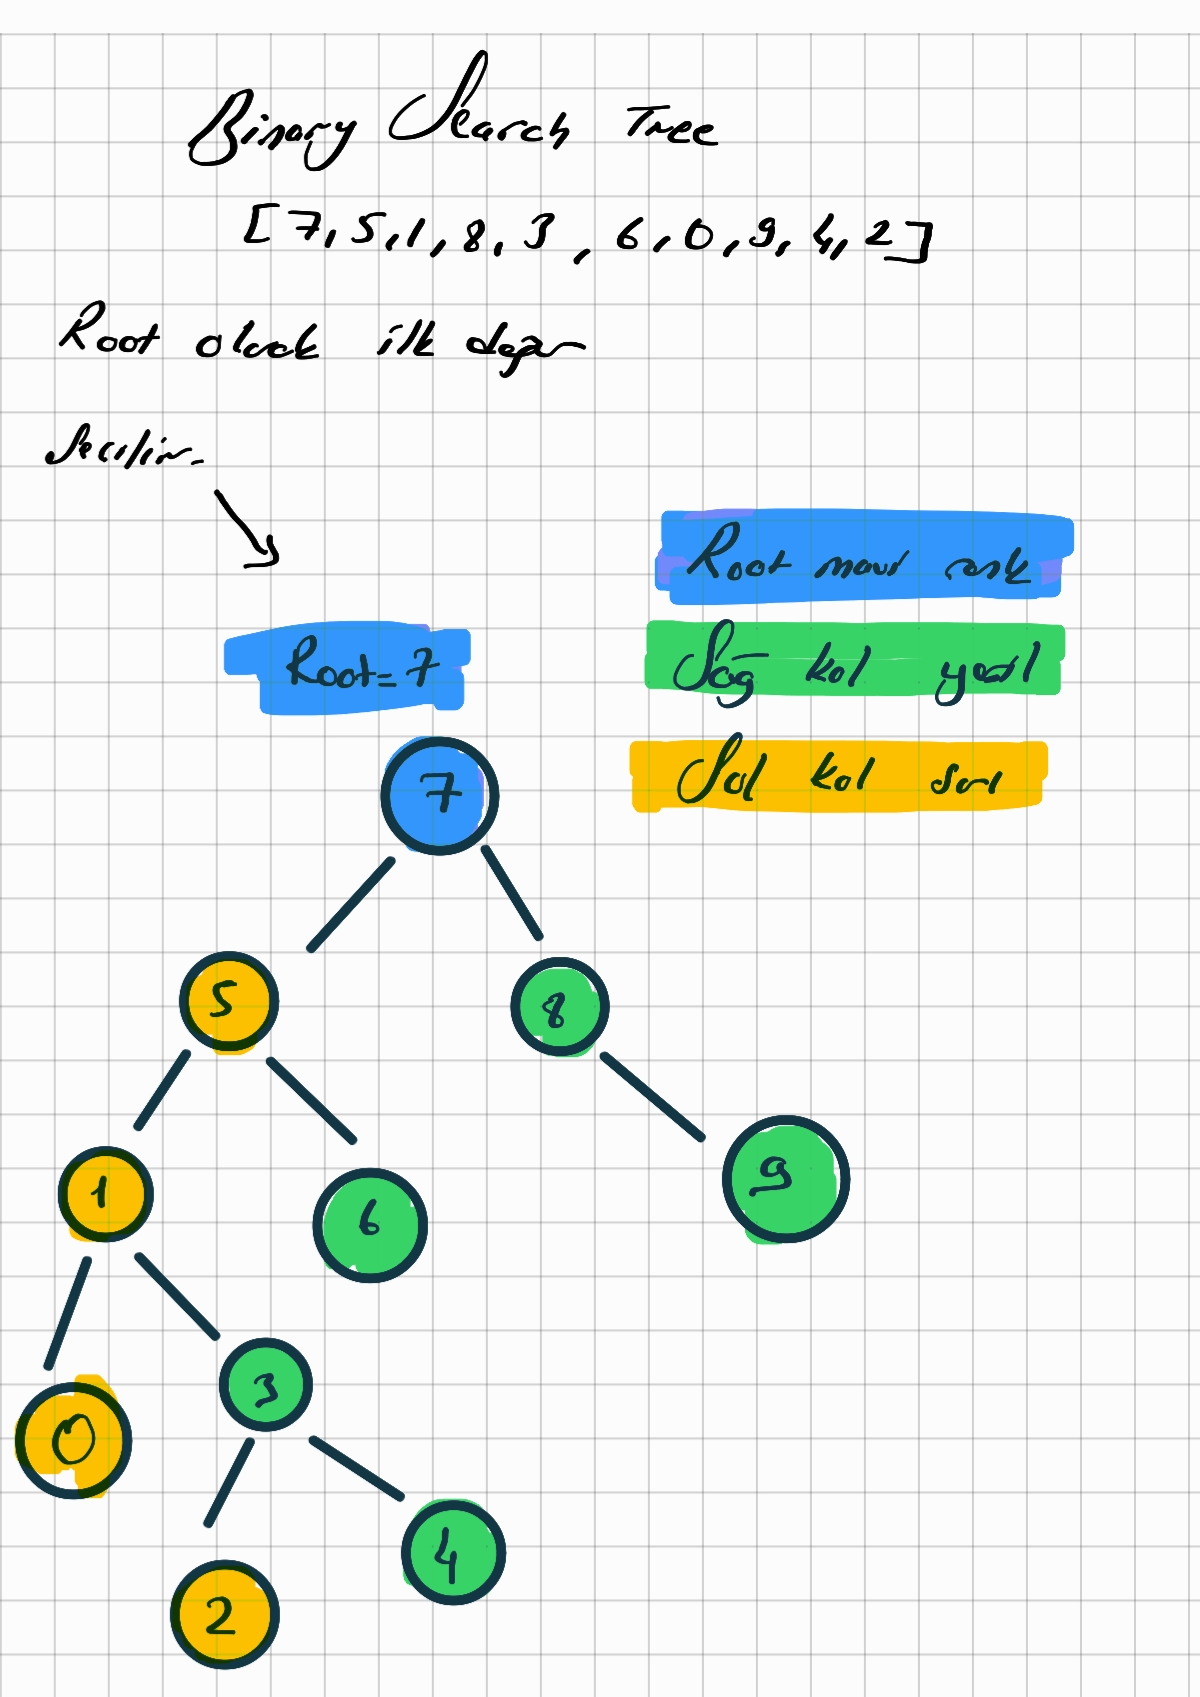 Binary Search Tree
[7, 5, 1, 8, 3, 6, 0, 9, 4, 2]
Root olarak ilk değer
seçilir.
Root mavi renk
Root=7
Sağ kol yeşil
Sol kol sarı
7
5
8
1
6
9
0
3
2
4